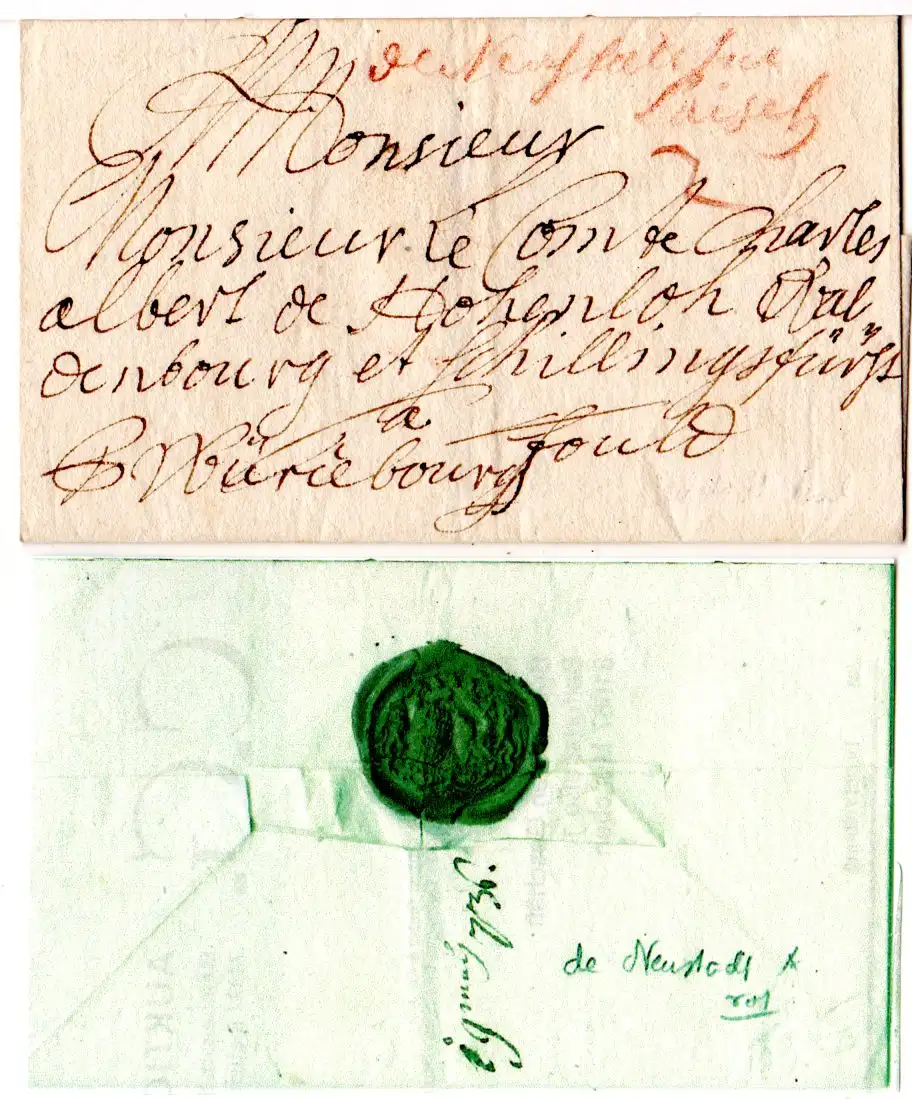 de Neustatt sur
l'aisch
Monsieur
Monsieur Le Comte Charles
albert de Hohenloh Wal
denbourg et schillingsfürst
a
P Würtzbourg fould
de Neustadt
rot